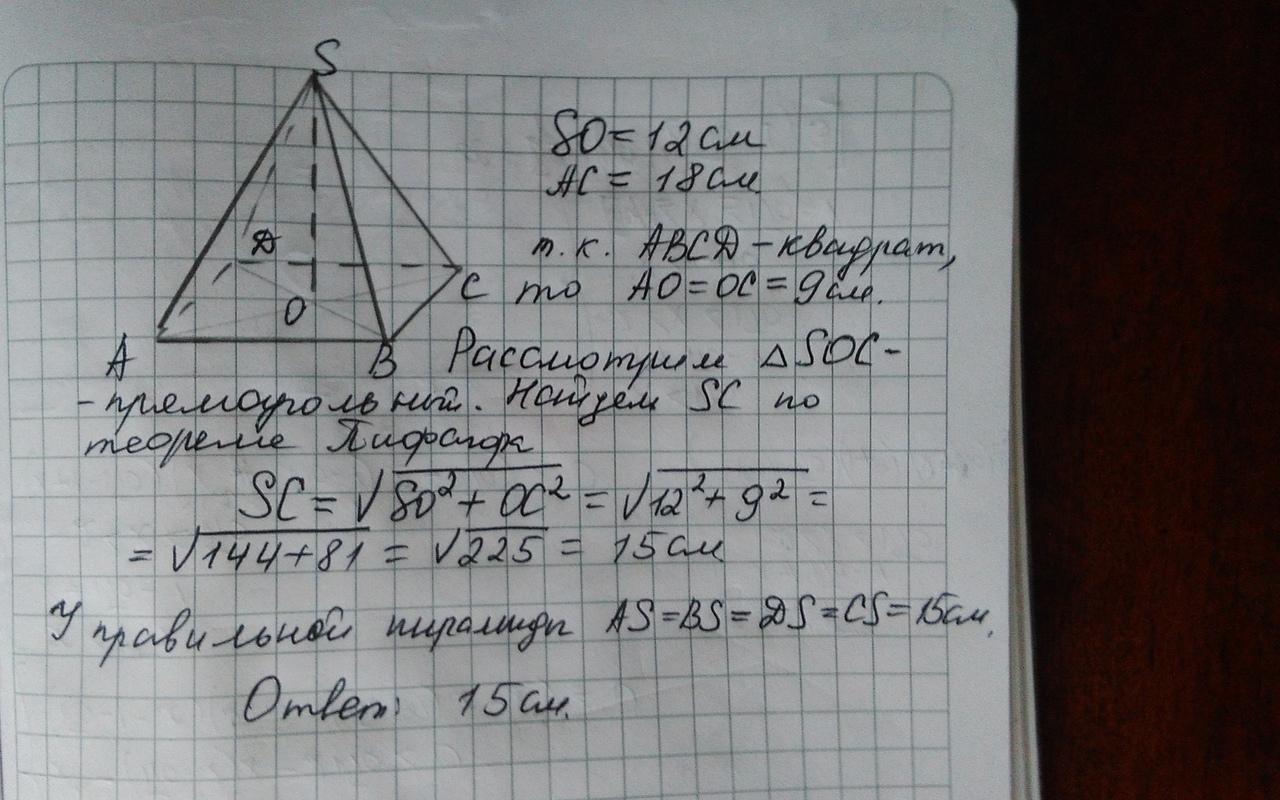 S
SO = 12 см
AC = 18 см
D
т.к. ABCD - квадрат,
C
то AO = OC = 9 см.
O
A
B
Рассмотрим △SOC -
- прямоугольный. Найдем SC по
теореме Пифагора
SC = √SO² + OC² = √12² + 9² =
= √144+81 = √225 = 15 см
У правильной пирамиды AS = BS = DS = CS = 15 см.
Ответ: 15 см.